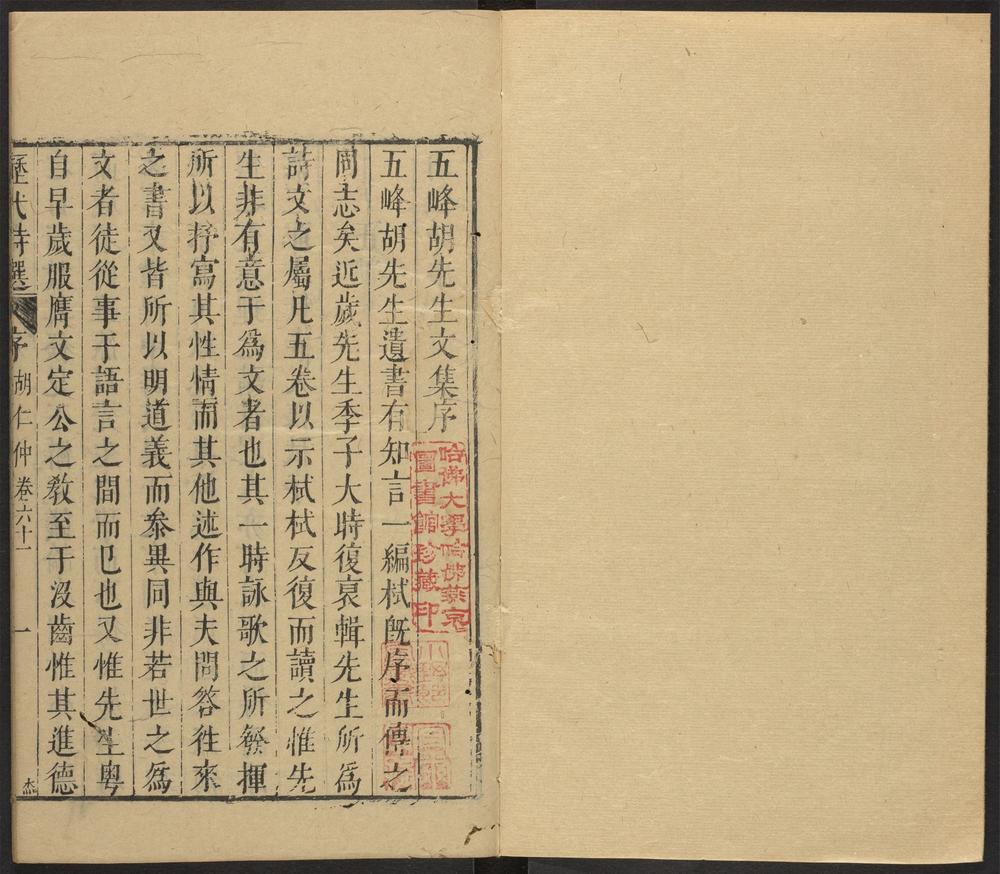 五峰胡先生文集序
五峰胡先生遺書有知言一編栻旣序而傳之
同志矣近歲先生季子大時復裒輯先生所爲
詩文之屬凡五卷以示栻栻反復而讀之惟先
生非有意于爲文者也其一時詠歌之所發揮
所以抒寫其性情而其他述作與夫問答徃來
之書又皆所以明道義而叅異同非若世之爲
文者徒從事于語言之間而已也又惟先生粤
自早歲服膺文定公之教至于沒齒惟其進德
歷代詩選 序 胡仁仲卷六十一 一 杰
哈佛大學哈佛燕京
圖書館珍藏印